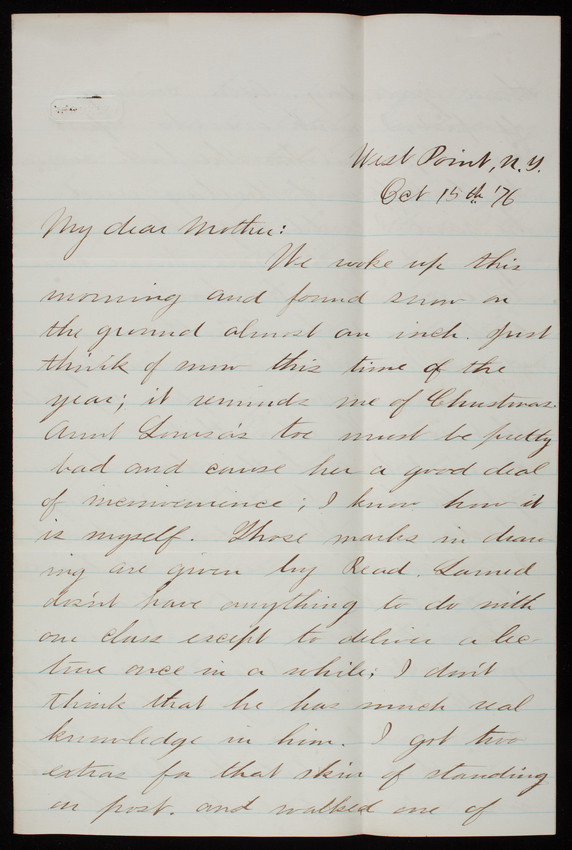 West Point, N.Y.
Oct 15th '76
My dear Mother:
We woke up this
morning and found snow on
the ground almost an inch. Just
think of snow this time of the
year; it reminds me of Christmas.
Aunt Louisa's toe must be pretty
bad and cause her a good deal
of inconvenience; I know how it
is myself. Those marks in draw
ing are given by Read. Larned
dosn't have anything to do with
our class except to deliver a lec-
ture once in a while; I don't
think that he has much real
knowledge in him. I got two
extras for that skin of standing
on post. and walked one of